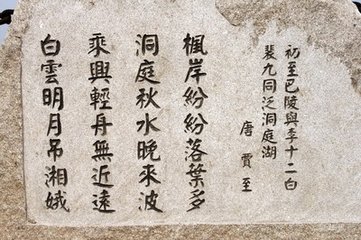 初至巴陵與李十二白
裴九同泛洞庭湖
唐 賈至
楓岸紛紛落葉多
洞庭秋水晚來波
乘興輕舟無近遠
白雲明月吊湘娥